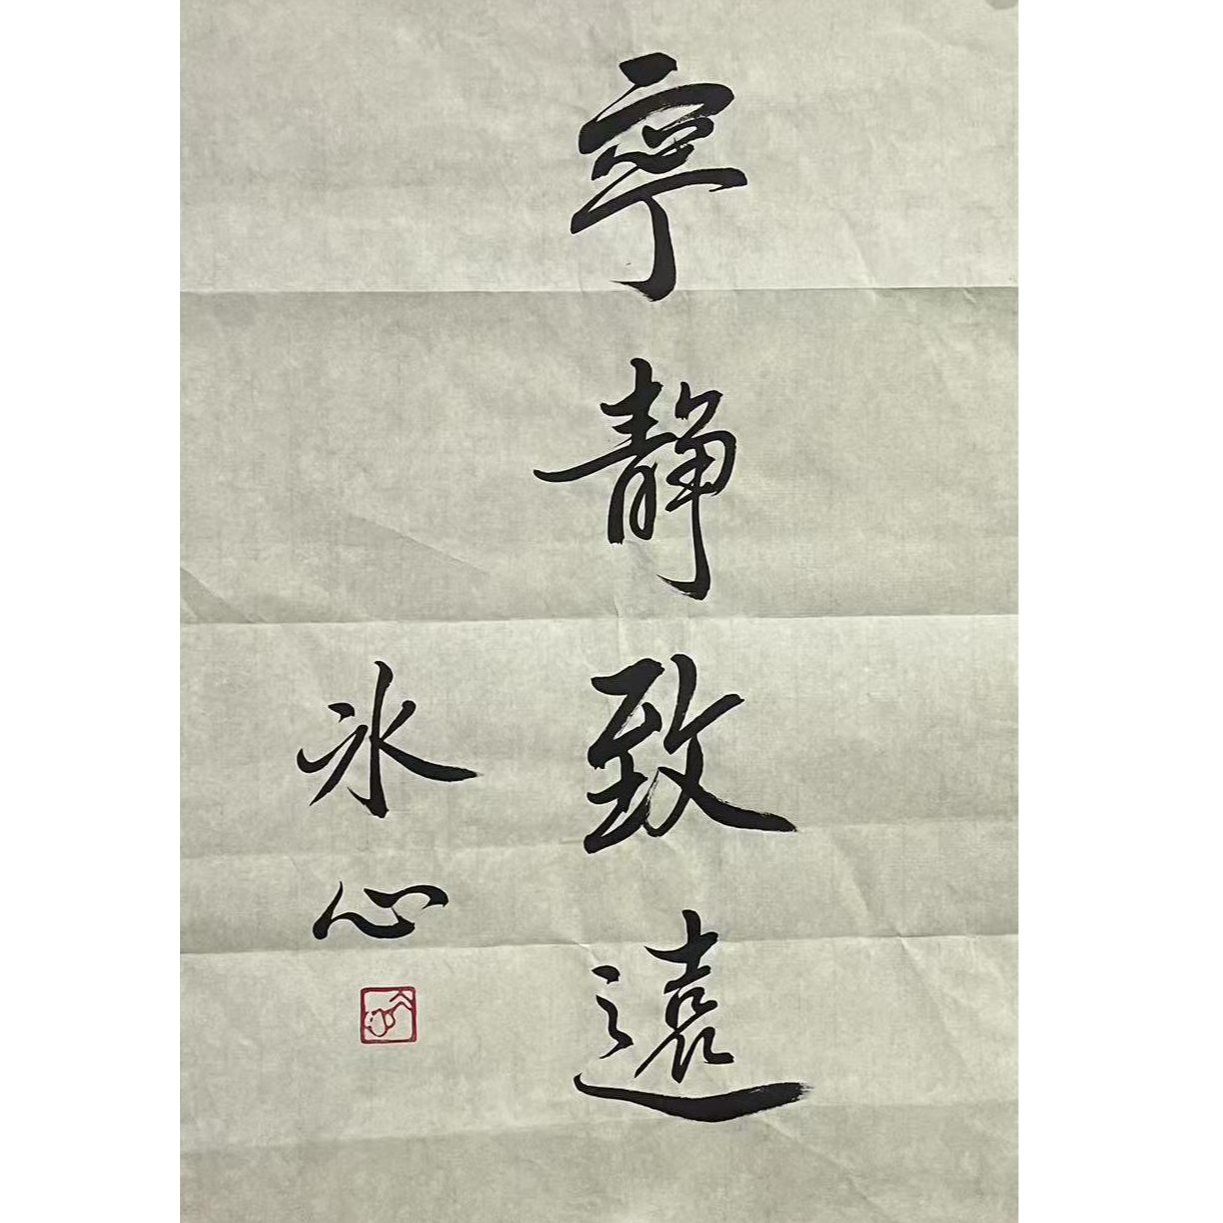 寧静致遠
冰心